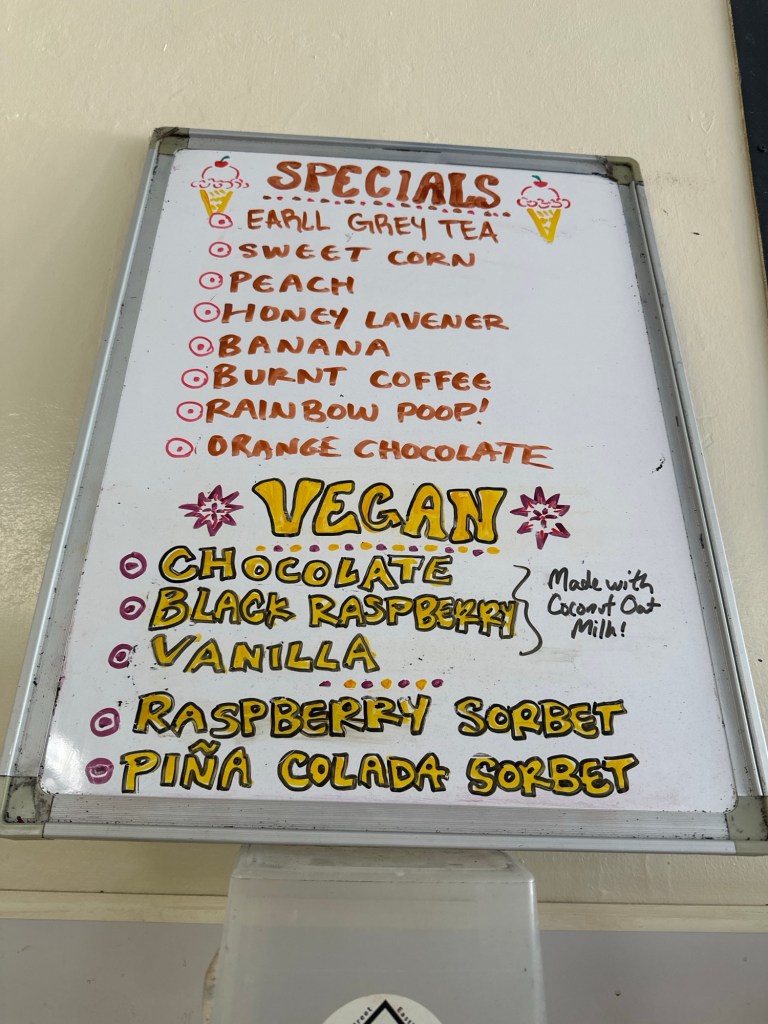 SPECIALS
EARLL GREY TEA
SWEET CORN
PEACH
HONEY LAVENER
BANANA
BURNT COFFEE
RAINBOW POOP!
ORANGE CHOCOLATE
VEGAN
CHOCOLATE
BLACK RASPBERRY
VANILLA
Made with
Coconut Oat
Milk!
RASPBERRY SORBET
PIÑA COLADA SORBET